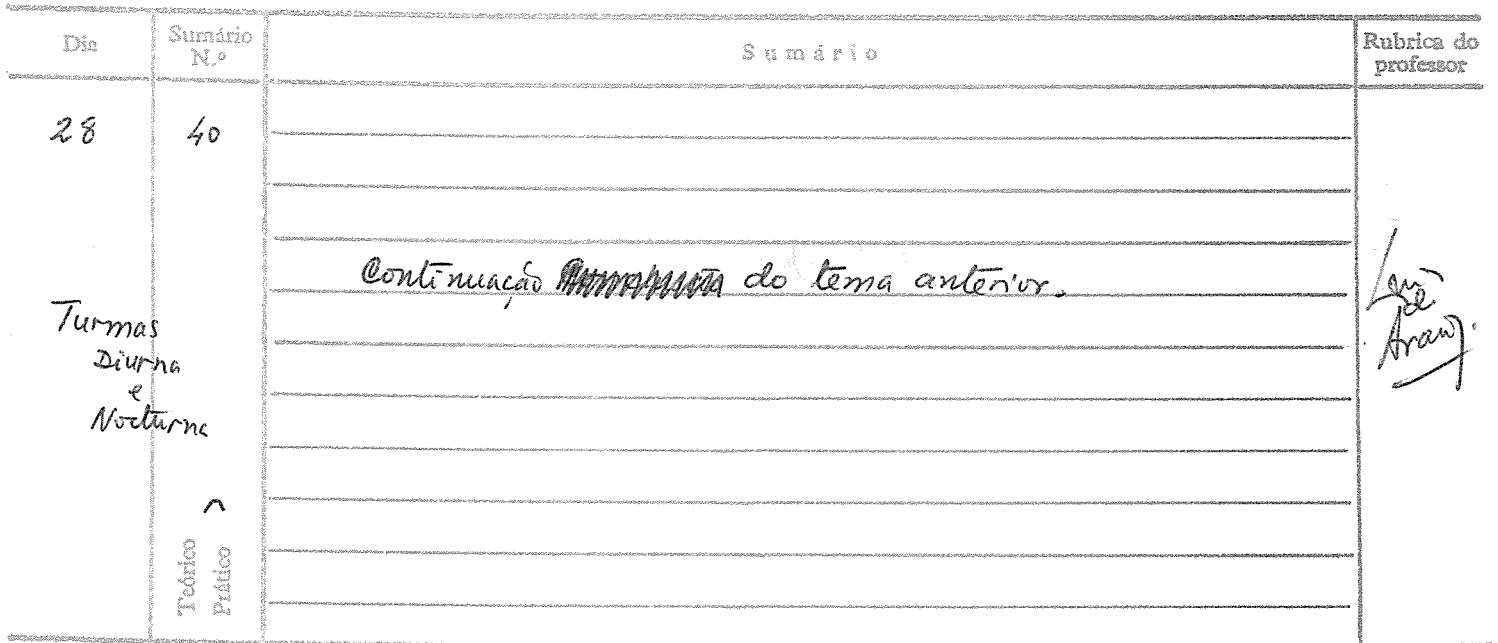 Dia
Sumário
N.º
Sumário
Rubrica do
professor
28
40
Continuação do tema anterior.
Turmas
Diurna
e
Nocturna
de
Araújo
Teórico
Prático